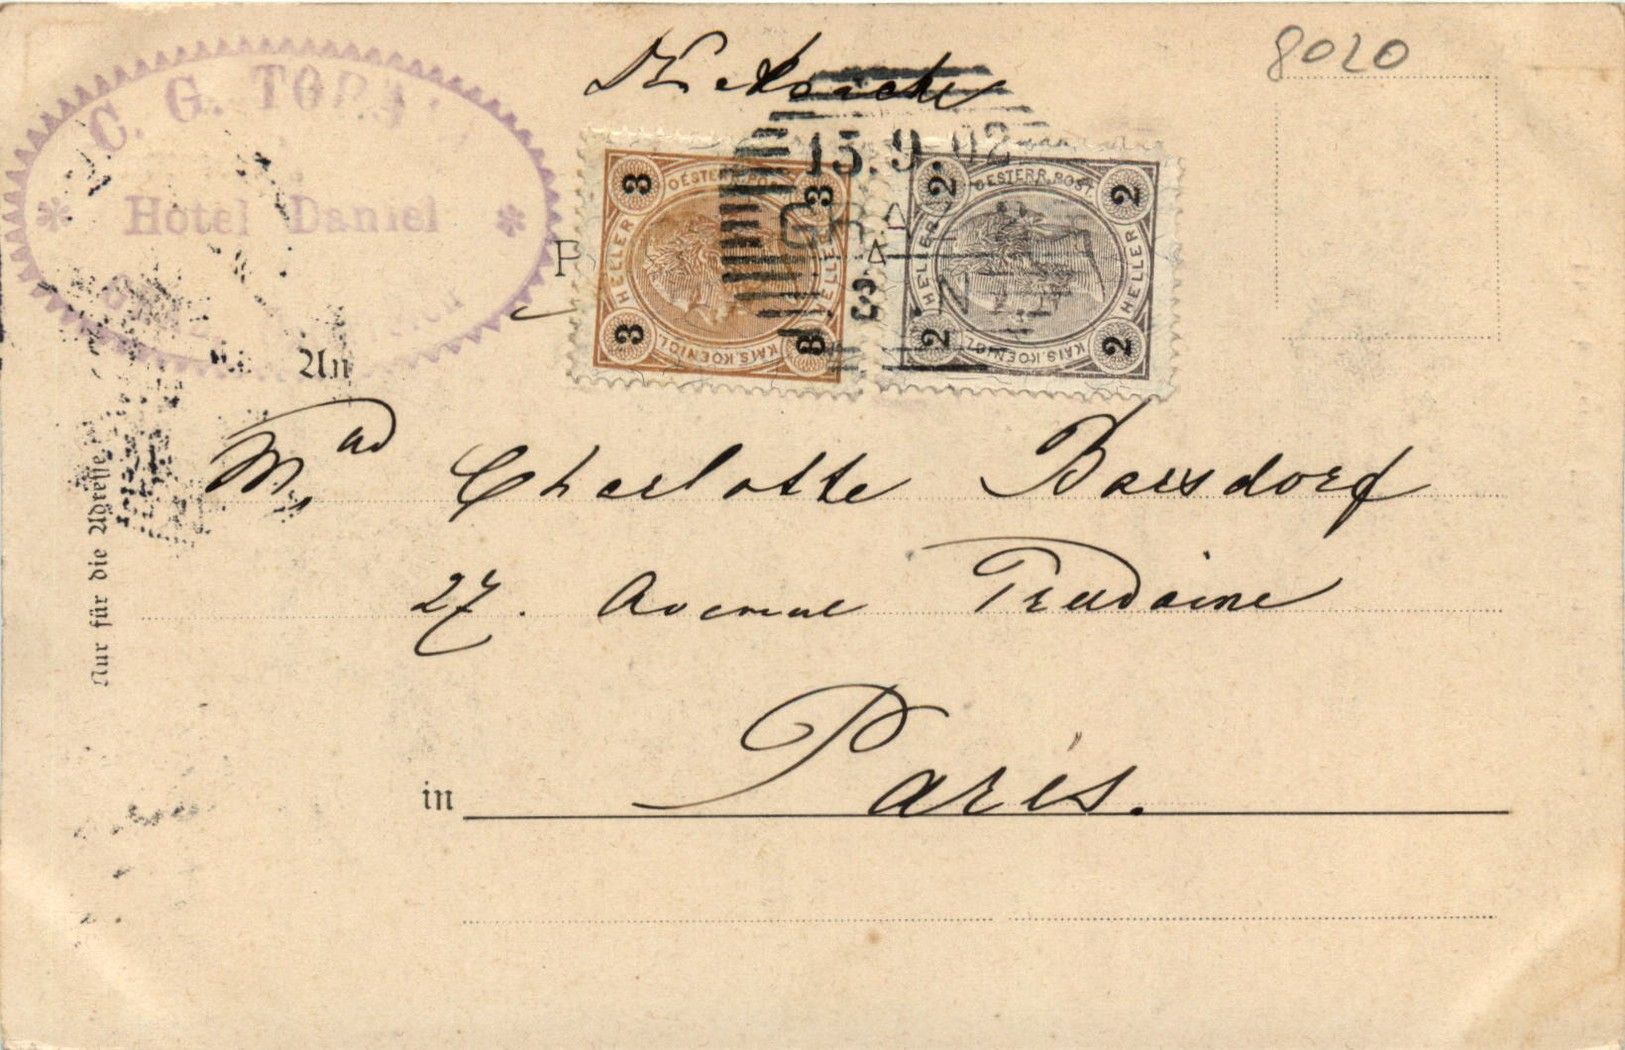 8020
C. G.
Hotel Daniel
15.9.02
GRAZ
3 3
OESTERR. POST
HELLER HELLER
KAIS. KOENIGL
3 3
2 2
OESTERR. POST
HELLER HELLER
KAIS. KOENIGL
2 2
An
Charlotte Barsdorf
27. Avenue Trudaine
in Paris.
Nur für die Adresse